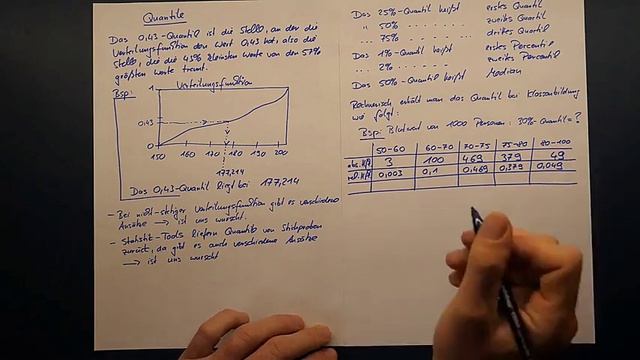 Quantile
Das 0,43-Quantil ist die Stelle, an der die
Verteilungsfunktion den Wert 0,43 hat, also die
Stelle, die die 43% kleinsten Werte von den 57%
größten Werte trennt.
Bsp: Verteilungsfunktion
1
0,43
0
150 160 170 180 190 200
177,214
Das 0,43-Quantil liegt bei 177,214
- Bei nicht-stetiger Verteilungsfunktion gibt es verschiedene
Ansätze → ist uns wurscht.
- Statistik-Tools liefern Quantile von Stichproben
zurück, da gibt es auch verschiedene Ansätze
→ ist uns wurscht
Das 25%-Quantil heißt erstes Quartil
" 50% zweites Quartil
75% drittes Quartil
Das 1%-Quantil heißt erstes Percentil
" 2% zweites Percentil
Das 50%-Quantil heißt Median
Rechnerisch erhält man das Quantil bei Klassenbildung
wie folgt:
Bsp: Blutwert von 1000 Personen: 30%-Quantil = ?
50-60 60-70 70-75 75-80 80-100
abs. Hfk 3 100 469 379 49
rel. Hfk 0,003 0,1 0,469 0,379 0,049